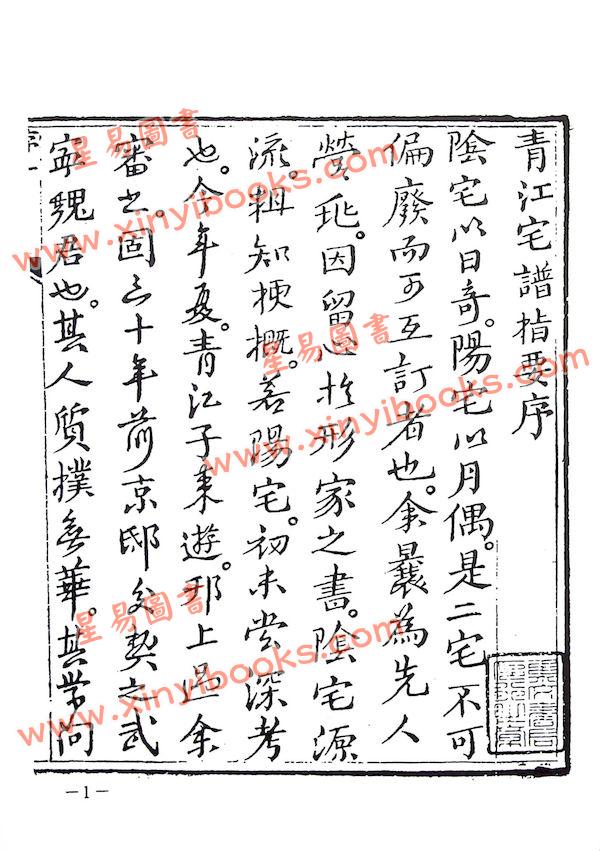 青江宅譜指要序
陰宅以日奇。陽宅以月偶。是二宅不可
偏廢而可互訂者也。余曩為先人
營兆。因留心於形家之書。陰宅源
流。輯知梗概。若陽宅。初未嘗深考
也。今年夏。青江子來遊。邗上過余
審之。固三十年前京邸交契之武
寧魏君也。其人質樸無華。其學問
—1—
星易圖書
www.xinyibooks.com
星易圖書
www.xinyibooks.com
星易圖書
www.xinyibooks.com